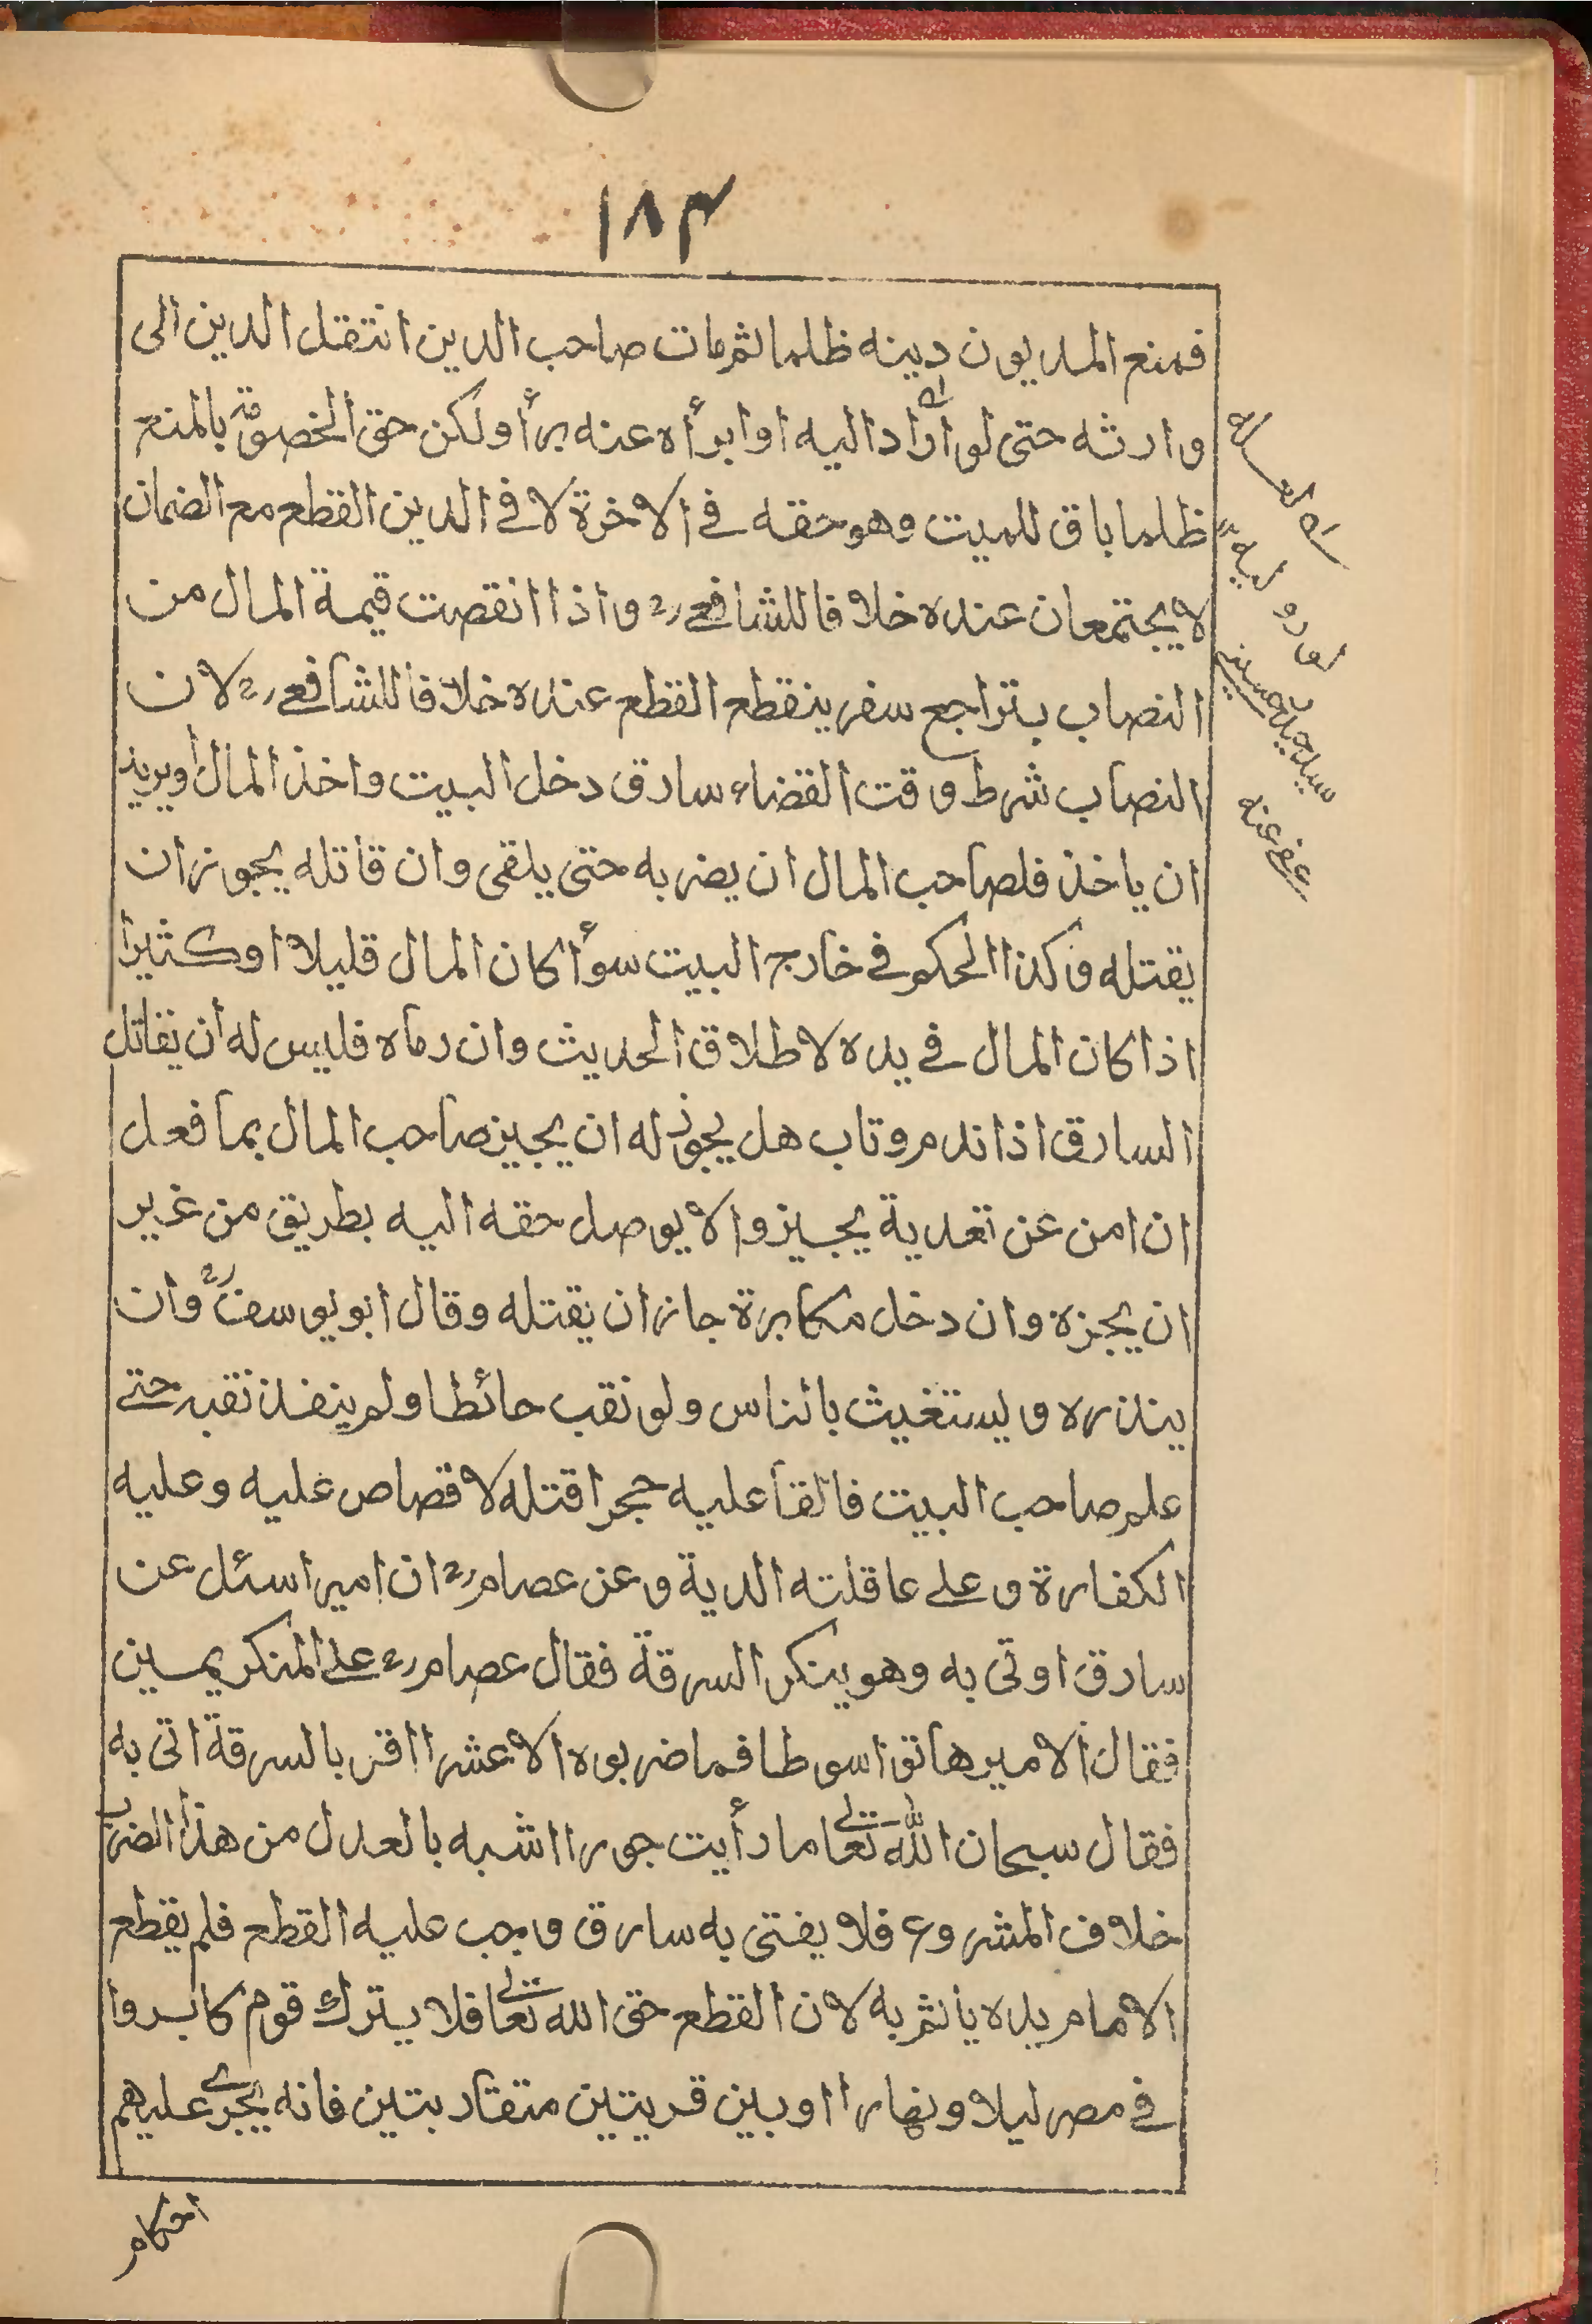 ١٨٣
فمنع المديون دينه ظلما ثم مات صاحب الدين انتقل الدين الى
وارثه حتى لو أراد اليه او ابرأه عنه برأ ولكن حق الخصومة بالمنع
ظلما باق للميت وهو حقه في الاخرة لا في الدين القطع مع الضمان
لا يجتمعان عنده خلافا للشافعي رح واذا انقصت قيمة المال من
النصاب بتراجع سفر ينقطع القطع عنده خلافا للشافعي رح لان
النصاب شرط وقت القضاء سارق دخل البيت واخذ المال أو يريد
ان ياخذ فلصاحب المال ان يضربه حتى يلقى وان قاتله يجوز ان
يقتله وكذا الحكم في خارج البيت سوأ كان المال قليلا او كثيرا
اذا كان المال في يده لاطلاق الحديث وان رماه فليس له ان يقاتل
السارق اذا ندم وتاب هل يجوز له ان يجيز صاحب المال بما فعل
ان امن عن تعدية يجيز والا يوصل حقه اليه بطريق من غير
ان يجزه وان دخل مكابرة جاز ان يقتله وقال ابو يوسف رح وان
ينذره ويستغيث بالناس ولو نقب حائطا ولم ينفذ نقبه حتى
علم صاحب البيت فالقا عليه حجرا قتله لا قصاص عليه وعليه
الكفارة وعلى عاقلته الدية وعن عصام رح ان اميرا سئل عن
سارق اوتى به وهو ينكر السرقة فقال عصام رح على المنكر يمين
فقال الامير هاتوا سوطا فما ضربوه الا عشرا اقر بالسرقة اتى به
فقال سبحان الله تعالى ما رأيت جورا اشبه بالعدل من هذا الضرب
خلاف المشروع فلا يفتى به سارق وجب عليه القطع فلم يقطع
الامام يده يأثم به لان القطع حق الله تعالى فلا يترك قوم كابروا
في مصر ليلا ونهارا او بين قريتين متقاربتين فانه يجرى عليهم
احكام
سيد حسين
عفى عنه